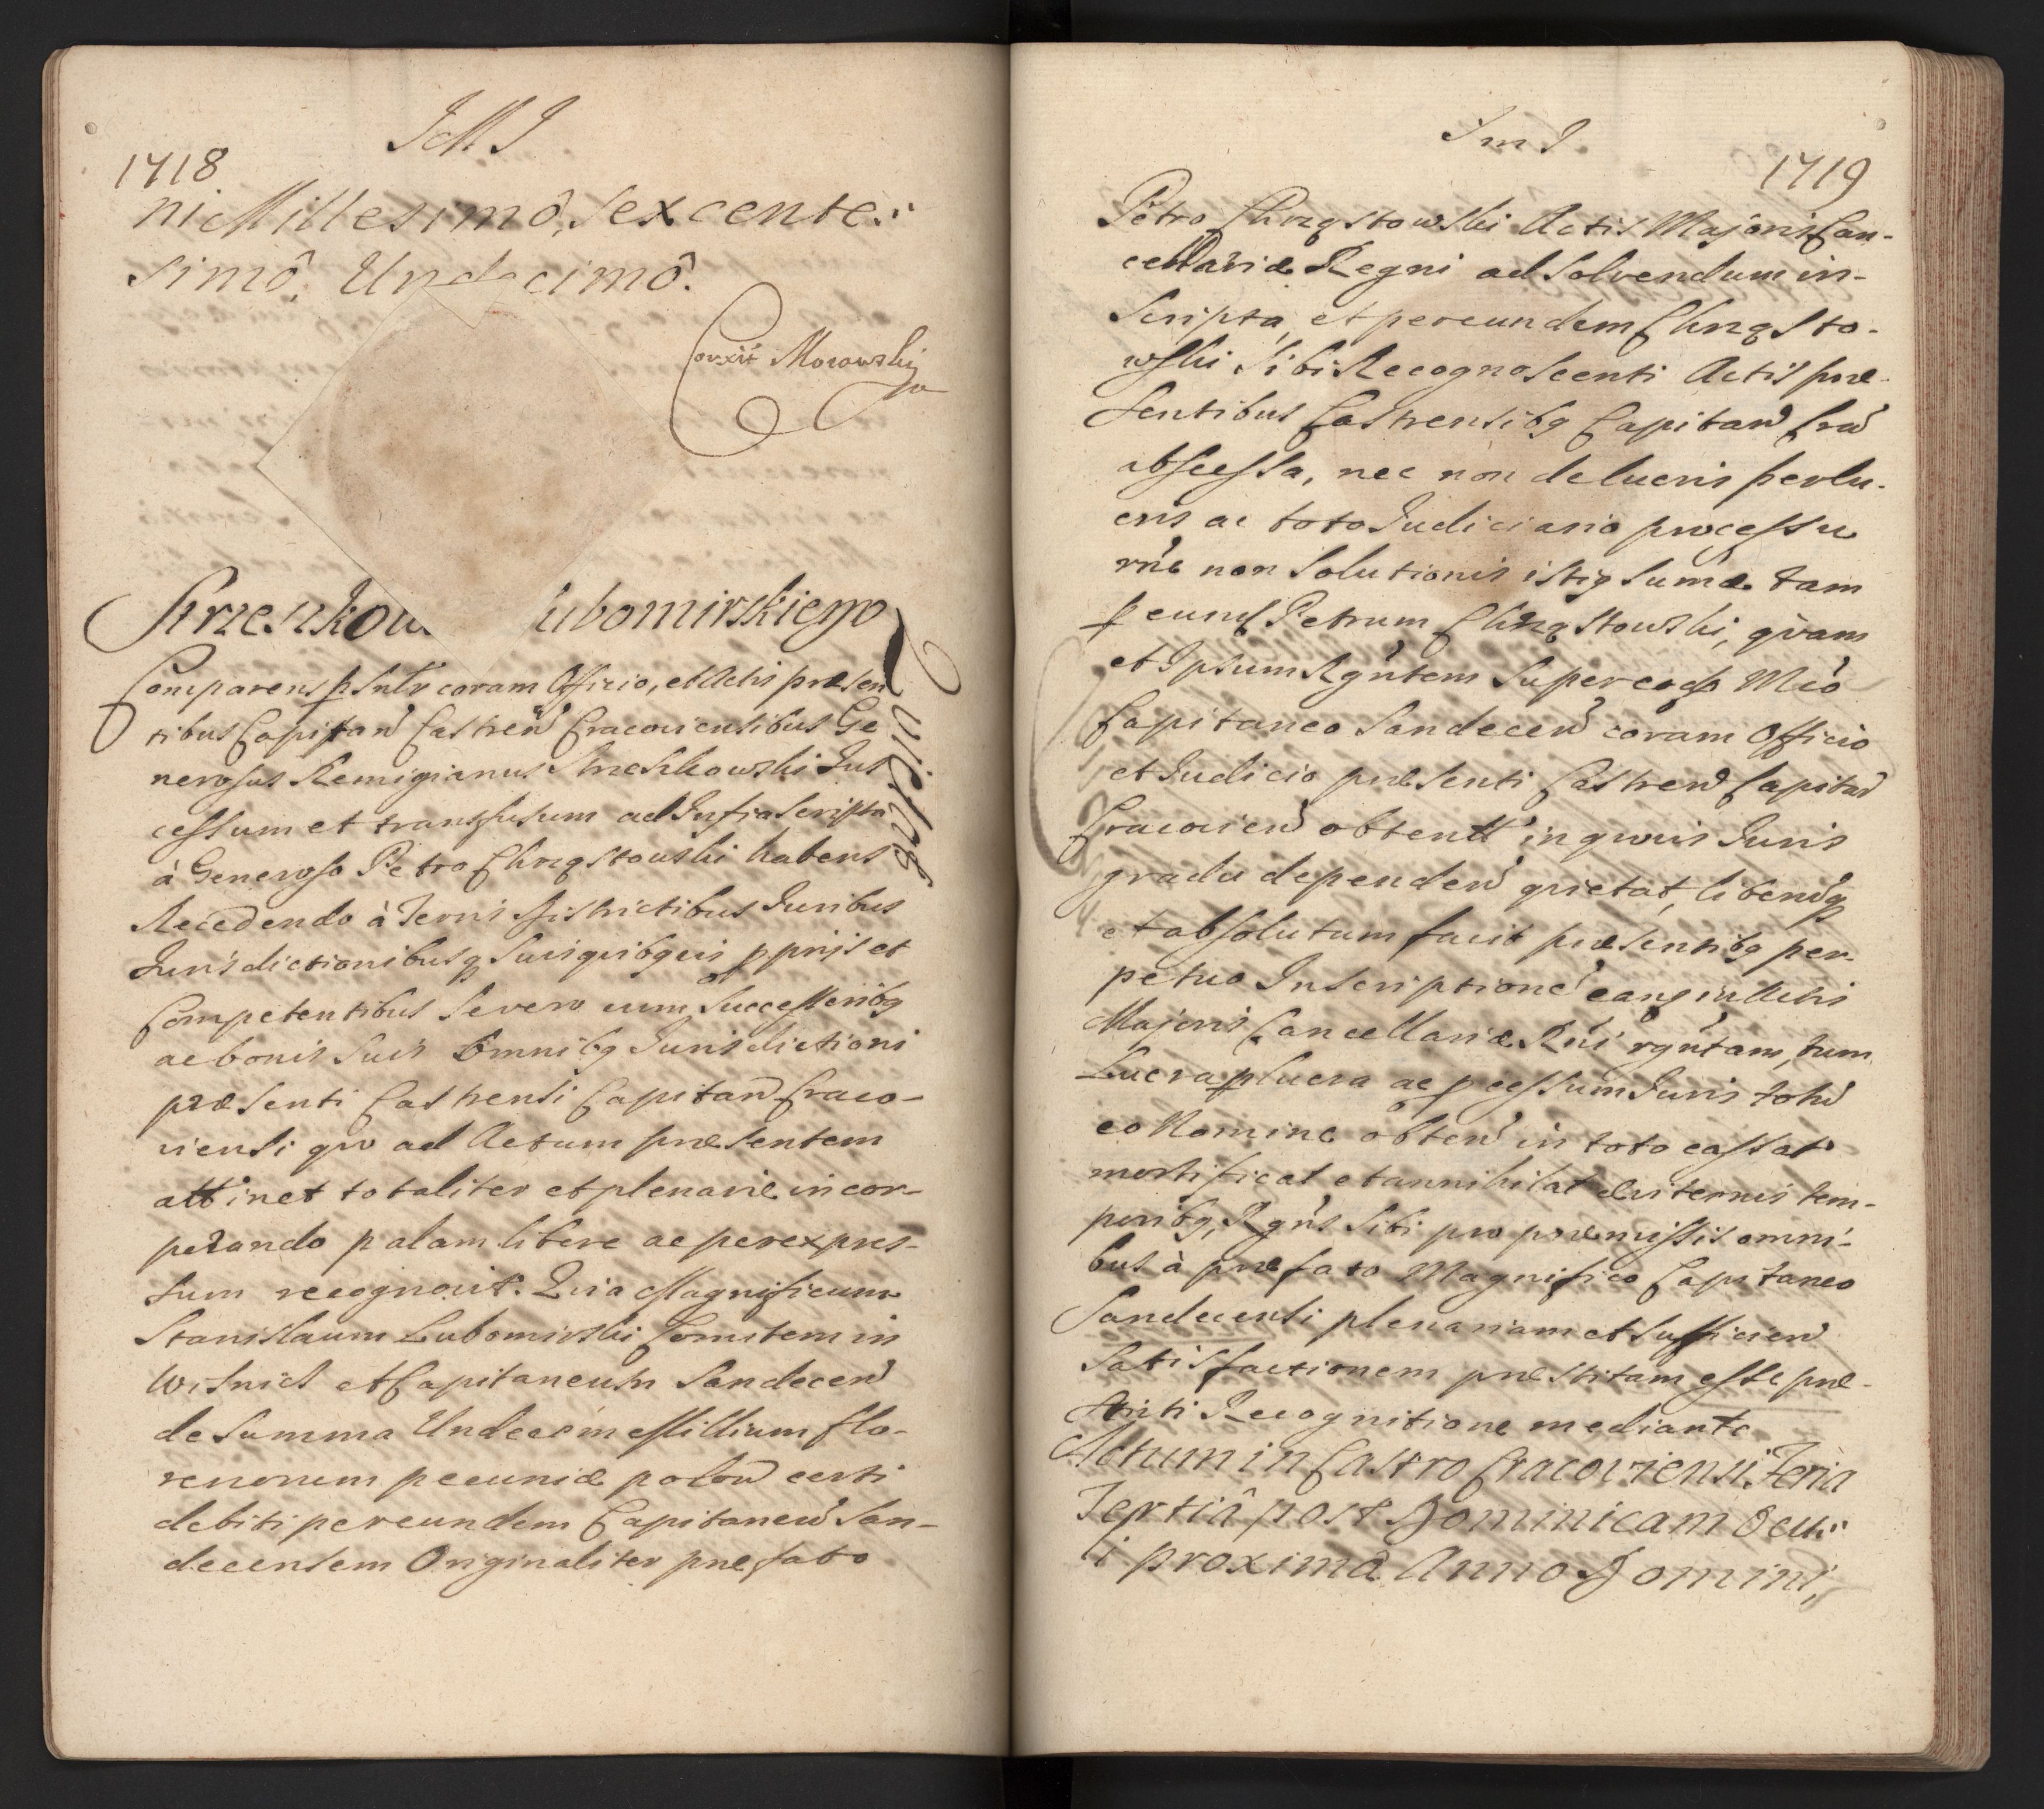 JMJ
1718
ni Millesimô, Sexcente:
simô, Undecimô.
Corxit Morowski
Strzeszkow Lubomirskiego
quietat
Comparens psntr coram Officio, et Actis præsen
tibus Capitan Castren Cracoviensibus Ge
nerosus Remigianus Strzeszkowski Jus
cessum et transfusum ad Infrascripta
à Generoso Petro Chrząstowski habens
Recedendo à Terris Districtibus Juribus
Jurisdictionibusq suis quibqvis pprijs et
Competentibus Se vero cum Successoribq
ac bonis suis Omnibq Jurisdictioni
præsenti Castrensi Capitan Craco-
viensi qvo ad Actum præsentem
attinet totaliter et plenariè incor-
porando palam libere ac per expres-
sum recognovit. Quia Magnificum
Stanislaum Lubomirski Comitem in
Wisnicz et Capitaneum Sandecen
de Summa Undecim Millium flo-
renorum pecuniæ polon certi
debiti per eundem Capitaneu San-
decensem Originaliter præfato
JmJ
1719
Petro Chrząstowski Actis Majoris Can-
cellariæ Regni ad Solvendum in-
scripta, et per eundem Chrząsto-
wski Sibi Recognoscenti Actis præ-
sentibus Castrensibq Capitan Cra
abscessa, nec non de lucris perlu-
cris ac toto Judiciario processu
rñe non Solutionis istiq sumæ tam
p eund Petrum Chrząstowski, qvam
et Ipsum Rgñtem Super eodo Mco
Capitaneo Sandecen coram Officio
et Judicio præsenti Castren Capitan
Cracovien obtent in qvovis Juris
gradu dependen qvietat, liberumq
et absolutum facit præsentibq per-
petuo Inscriptione eanq in Actis
Majoris Cancellariæ Rñi rgñtam, tum
Lucra pluera ac pcessum Juris totu
eo Nomine obten in toto cassat
mortificat et annihilat æviternis tem-
poribq, Rgñs Sibi pro præmissis omni-
bus à præfato Magnifico Capitaneo
Sandecensi plenariam et sufficien
satisfactionem præstitam esse præ-
senti Recognitione mediante
Actum in Castro Cracoviensi Feria
Tertiâ post Dominicam Ocu:
li proximâ Anno Domini,